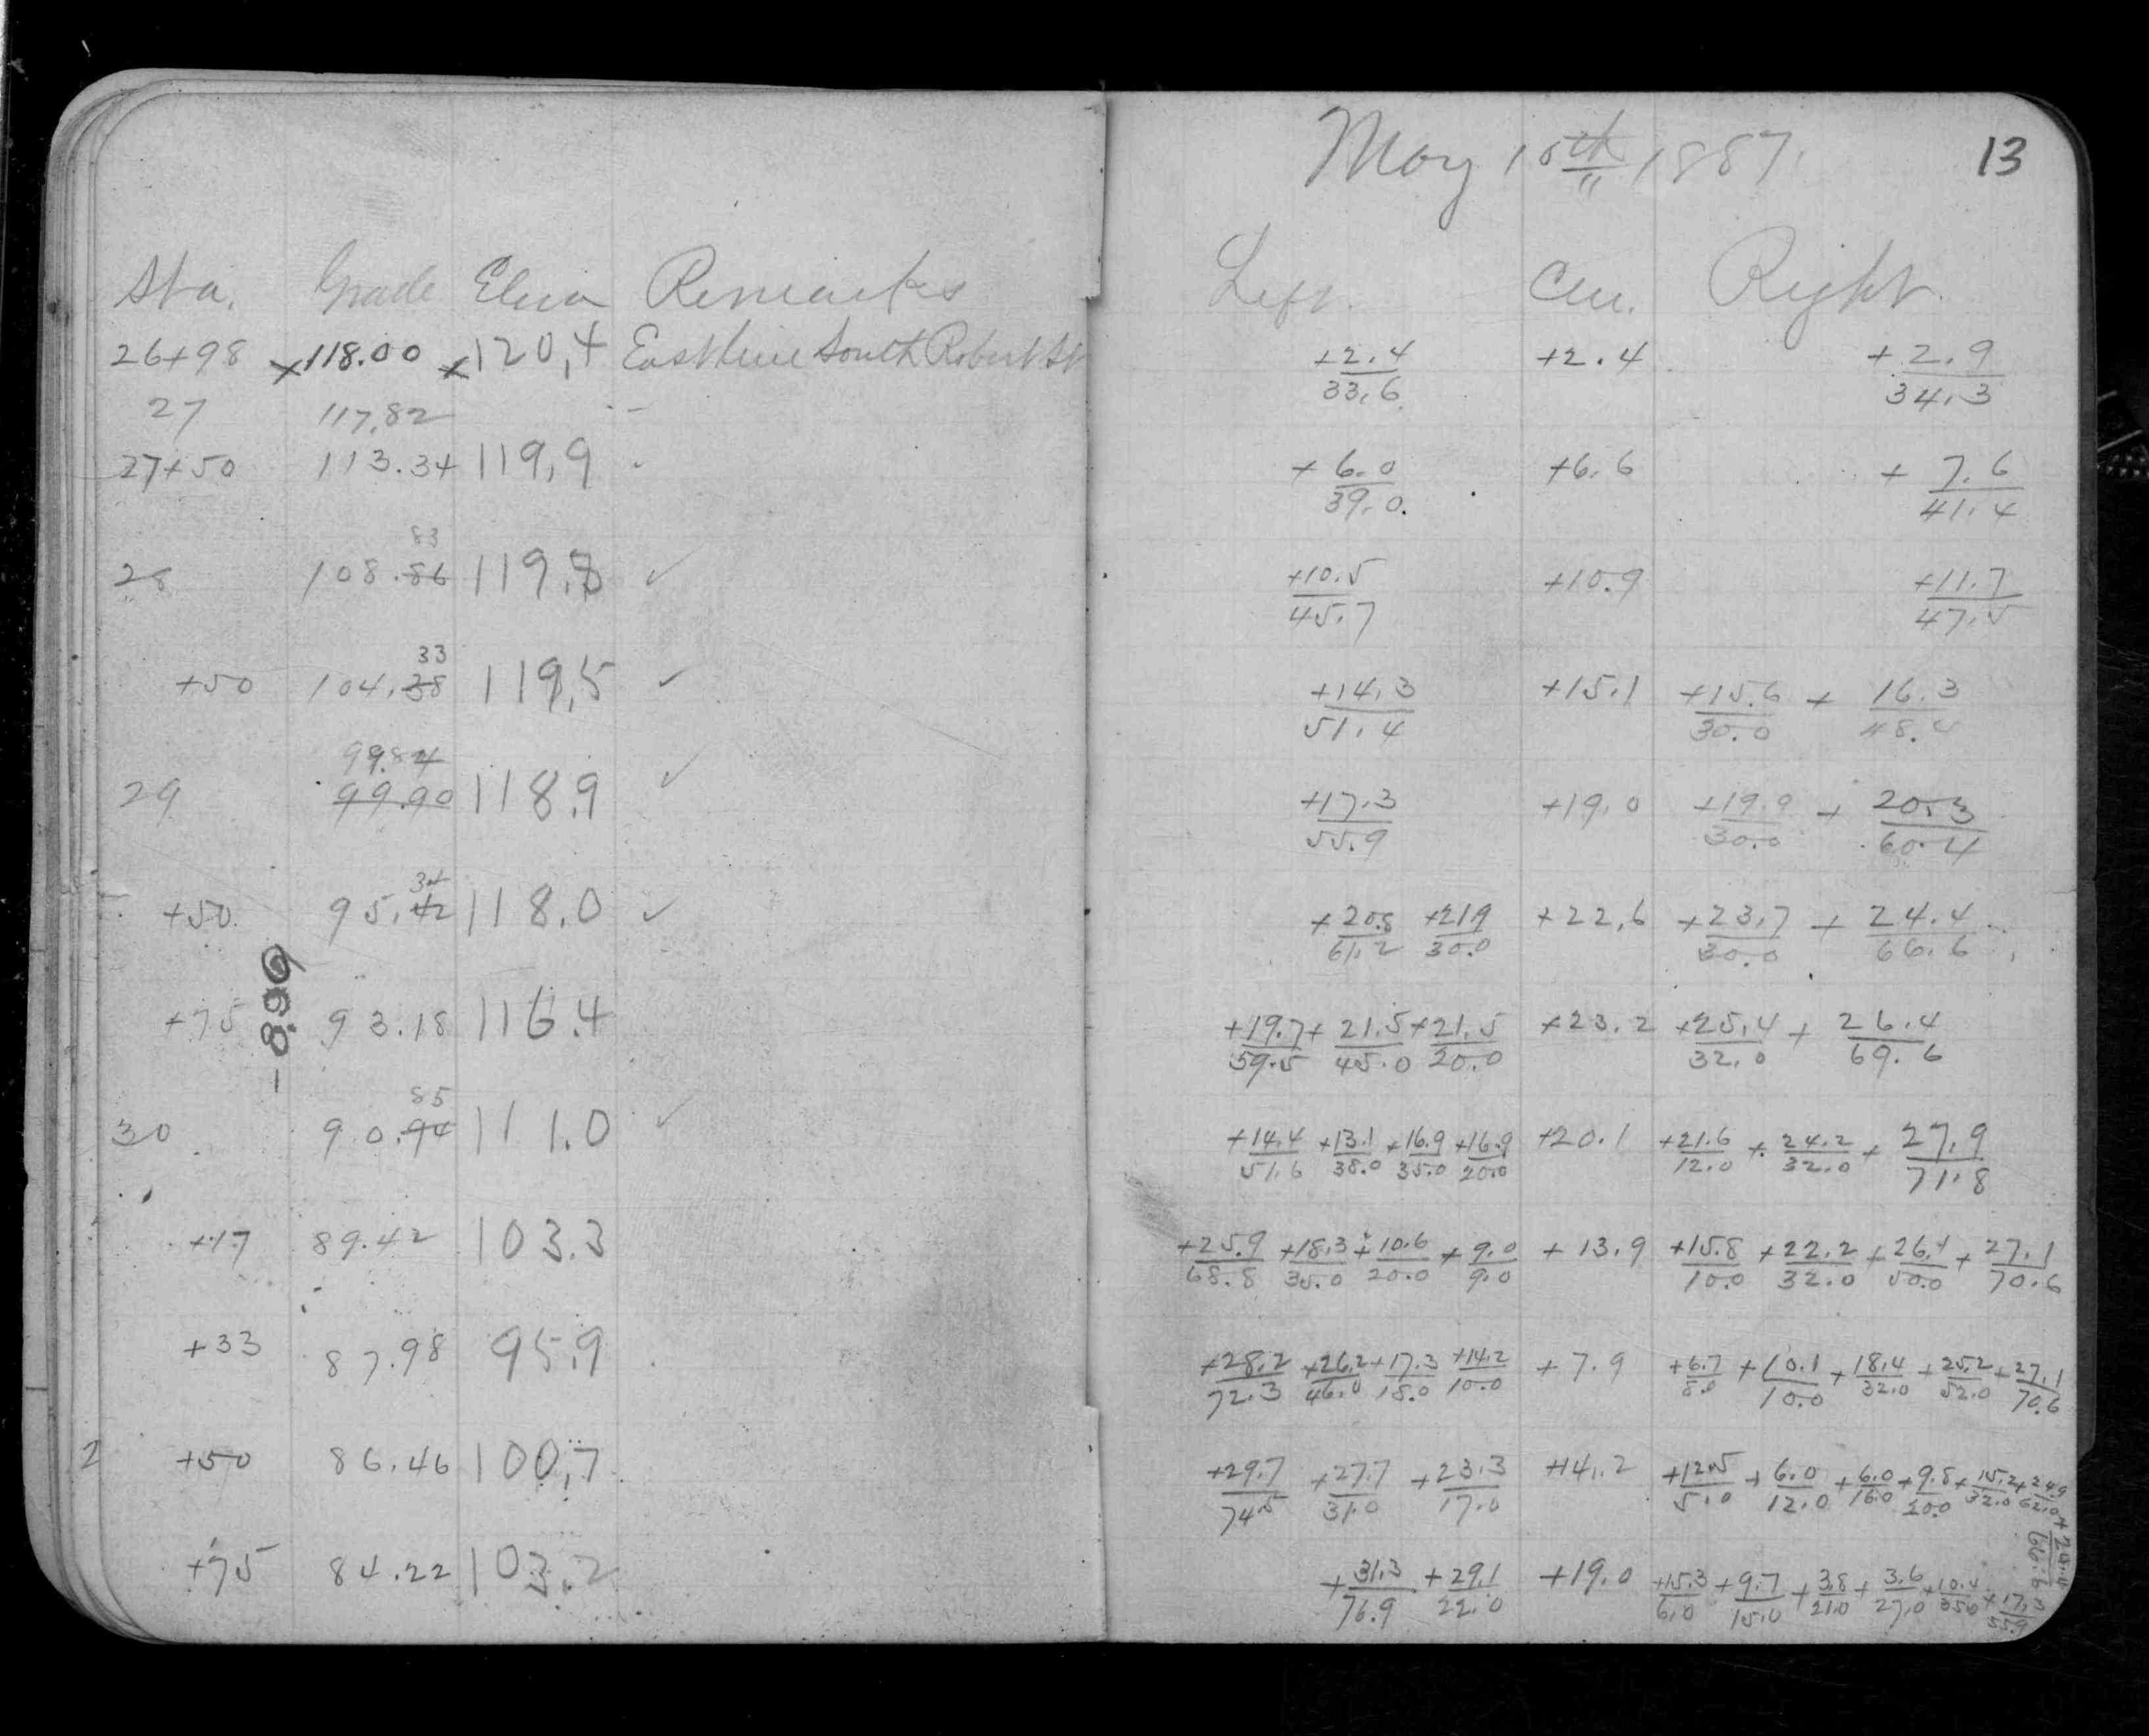 May 10th 1887. 13
Sta. Grade Eleva Remarks Left. Cen. Right
26+98 x118.00 x120,4 East line South Robert St +2.4/33,6 +2.4 +2.9/34,3
27 117,82
27+50 113.34 119,9 +6.0/39.0. +6.6 +7.6/41,4
83
28 108.86 119,8 ✓ +10.5/45.7 +10.9 +11.7/47.5
33
+50 104.38 119,5 ✓ +14,3/51.4 +15.1 +15.6/30.0 +16.3/48.4
99.84
29 99.90 118.9 ✓ +17.3/55.9 +19.0 +19.9/30.0 +20.3/60.4
34
+50 95.42 118.0 ✓ +20.8/61.2 +21.9/30.0 +22,6 +23.7/30.0 +24.4/66.6
-8.96
+75 93.18 116.4 +19.7/59.5 +21.5/45.0 +21.5/20.0 +23.2 +25.4/32.0 +26.4/69.6
85
30 90.94 111.0 ✓ +14.4/51.6 +13.1/38.0 +16.9/35.0 +16.9/20.0 +20.1 +21.6/12.0 +24.2/32.0 +27.9/71.8
+17 89.42 103.3 +25.9/68.8 +18.3/35.0 +10.6/20.0 +9.0/9.0 +13.9 +15.8/10.0 +22.2/32.0 +26.4/50.0 +27.1/70.6
+33 87.98 95.9 +28.2/72.3 +26.2/46.0 +17.3/15.0 +14.2/10.0 +7.9 +6.7/8.0 +10.1/10.0 +18.4/32.0 +25.2/52.0 +27.1/70.6
2 +50 86.46 100,7 +29.7/74.5 +27.7/31.0 +23.3/17.0 +14.2 +12.5/5.0 +6.0/12.0 +6.0/16.0 +9.8/20.0 +15.2/32.0 +24.9/62.0 +24.4/66.6
+75 84.22 103.2 +31.3/76.9 +29.1/22.0 +19.0 +15.3/6.0 +9.7/15.0 +3.8/21.0 +3.6/27.0 +10.4/35.0 +17.3/55.9